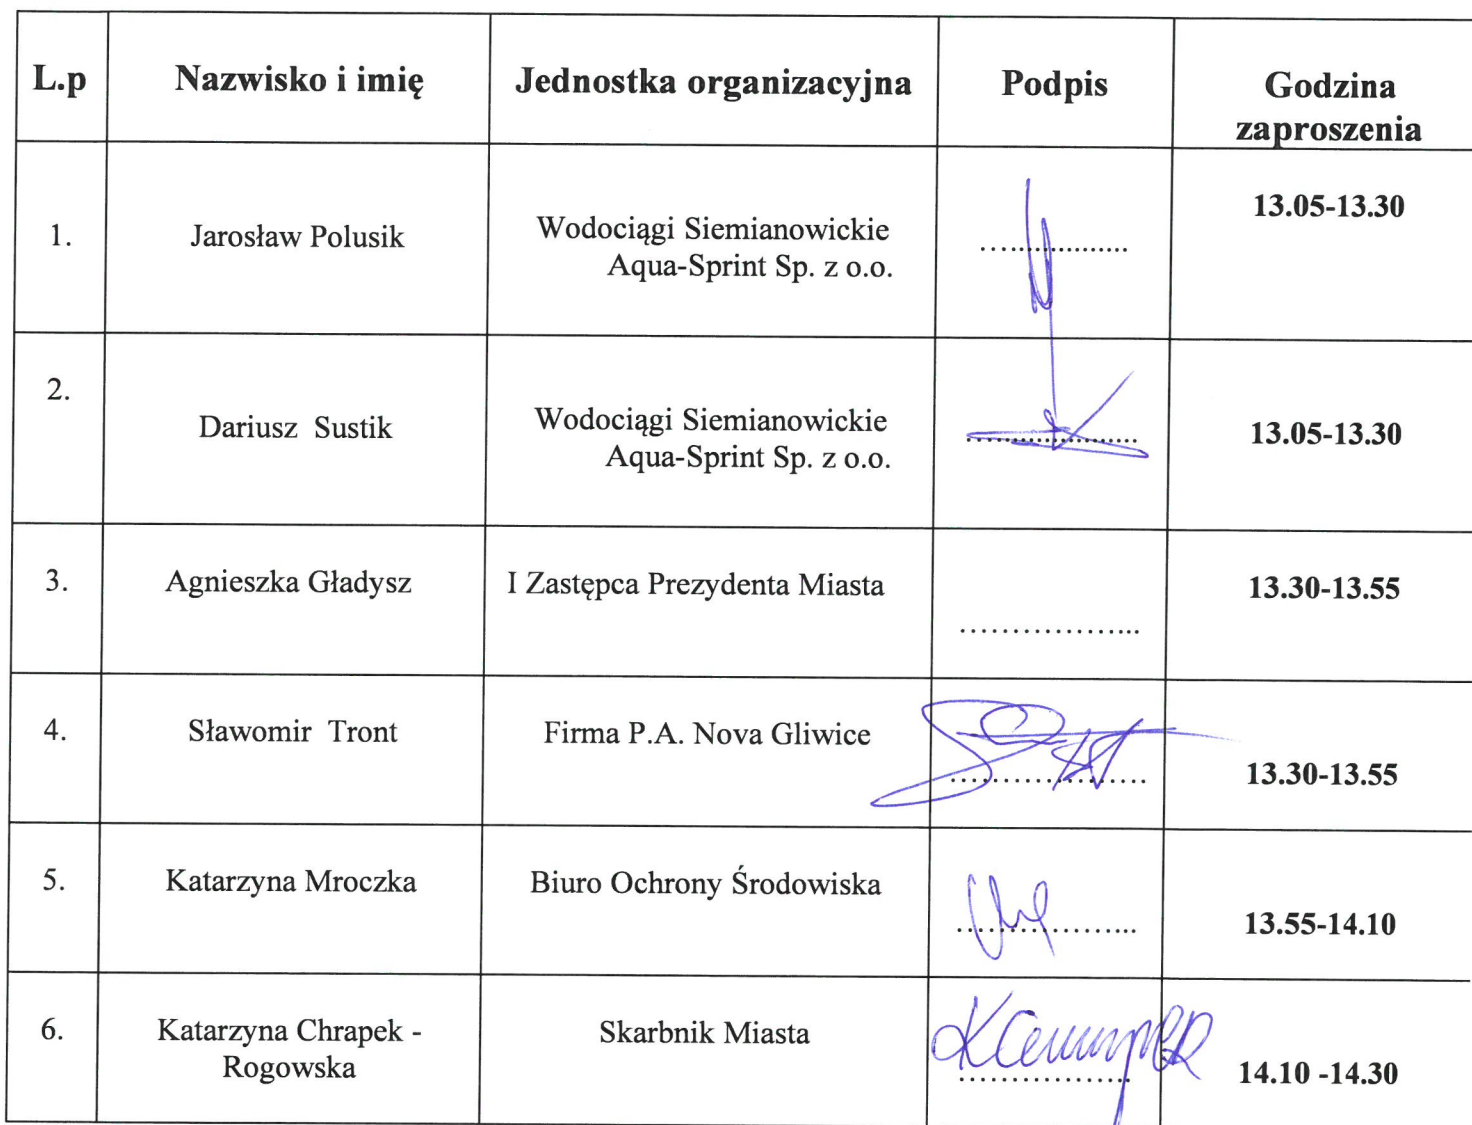 L.p Nazwisko i imię Jednostka organizacyjna Podpis Godzina
zaproszenia
1. Jarosław Polusik Wodociągi Siemianowickie
Aqua-Sprint Sp. z o.o. .................. 13.05-13.30
2. Dariusz Sustik Wodociągi Siemianowickie
Aqua-Sprint Sp. z o.o. .................. 13.05-13.30
3. Agnieszka Gładysz I Zastępca Prezydenta Miasta .................. 13.30-13.55
4. Sławomir Tront Firma P.A. Nova Gliwice .................. 13.30-13.55
5. Katarzyna Mroczka Biuro Ochrony Środowiska .................. 13.55-14.10
6. Katarzyna Chrapek -
Rogowska Skarbnik Miasta .................. 14.10 -14.30